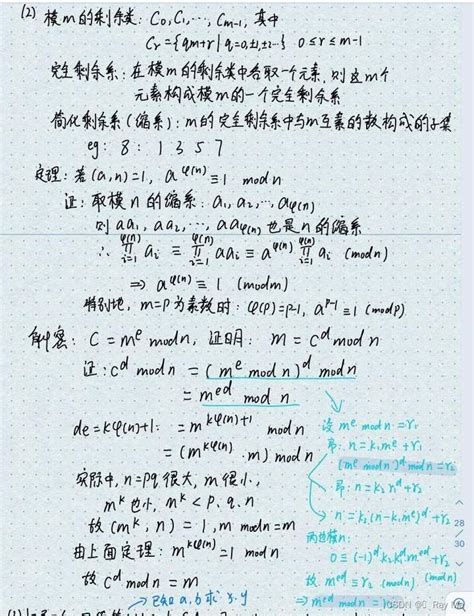 (2) 模m的剩余类: C₀, C₁, ⋯, Cₘ₋₁, 其中
Cᵣ = {qm+r | q=0,±1,±2⋯} 0≤r≤m-1
完全剩余系: 在模m的剩余类中各取一个元素, 则这m个
元素构成模m的一个完全剩余系
简化剩余系(缩系): m的完全剩余系中与m互素的数构成的子集
eg: 8: 1 3 5 7
定理: 若(a,n)=1, a^φ(n) ≡ 1 mod n
证: 取模n的缩系: a₁, a₂, ⋯, a_φ(n)
则 aa₁, aa₂, ⋯, aa_φ(n) 也是n的缩系
∴ ∏_{i=1}^{φ(n)} aᵢ ≡ ∏_{i=1}^{φ(n)} aaᵢ ≡ a^φ(n) ∏_{i=1}^{φ(n)} aᵢ (mod n)
⇒ a^φ(n) ≡ 1 (mod m)
特别地, m=p为素数时: φ(p)=p-1, a^{p-1} ≡ 1 (mod p)
解密: C = m^e mod n, 证明: m = c^d mod n
证: c^d mod n = (m^e mod n)^d mod n
= m^{ed} mod n
de = kφ(n)+1: = m^{kφ(n)+1} mod n
= (m^{kφ(n)} · m) mod n
实际中, n=pq 很大, m很小,
m^k 也小, m^k < p、q、n
故 (m^k, n) = 1, m mod n = m
由上面定理: m^{kφ(n)} mod n = 1
故 c^d mod n = m
设 m^e mod n = r₁
即: n = k₁m^e + r₁
(m^e mod n)^d mod n = r₂
即: n = k₂r₁^d + r₂
⇒ n = k₂(n-k₁m^e)^d + r₂
两边模n:
0 ≡ (-1)^d k₂k₁^d m^{ed} + r₂
故 m^{ed} ≡ r₂ (mod n)
⇒ m^{ed} mod n = r₂
28
30
→已知a,b求x,y
CSDN @C_Ray